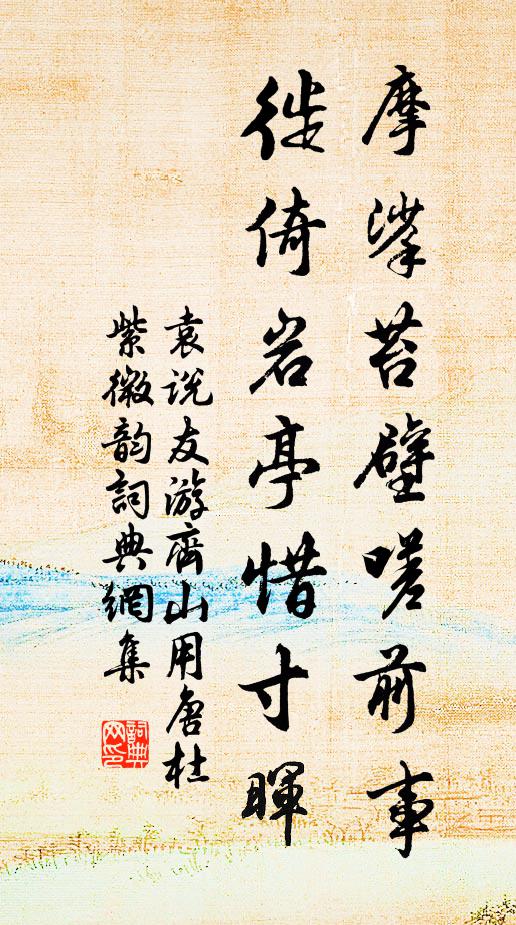 摩挲苔壁嗟前事
徙倚岩亭惜寸暉
袁说友游齊山用唐杜
紫微韵詞典網集
詞典网印